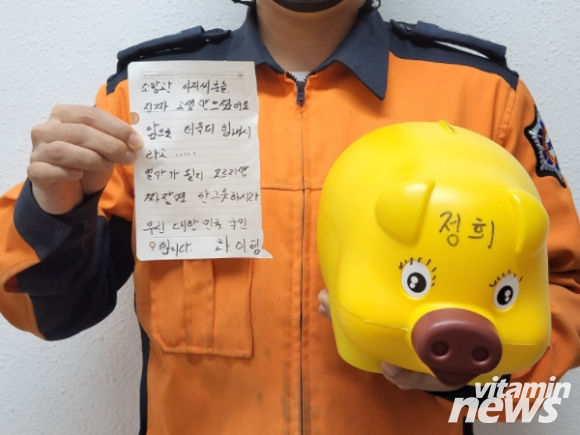 소방관 아저씨분들
진짜 고생 많으셨어요
앞으로 더욱더 힘내시
라고.....
얼마가 될지 모르지만
짜장면 한그릇하시라
우린 대한 민국 국민
입니다. 화이팅
정희
vitamin
news